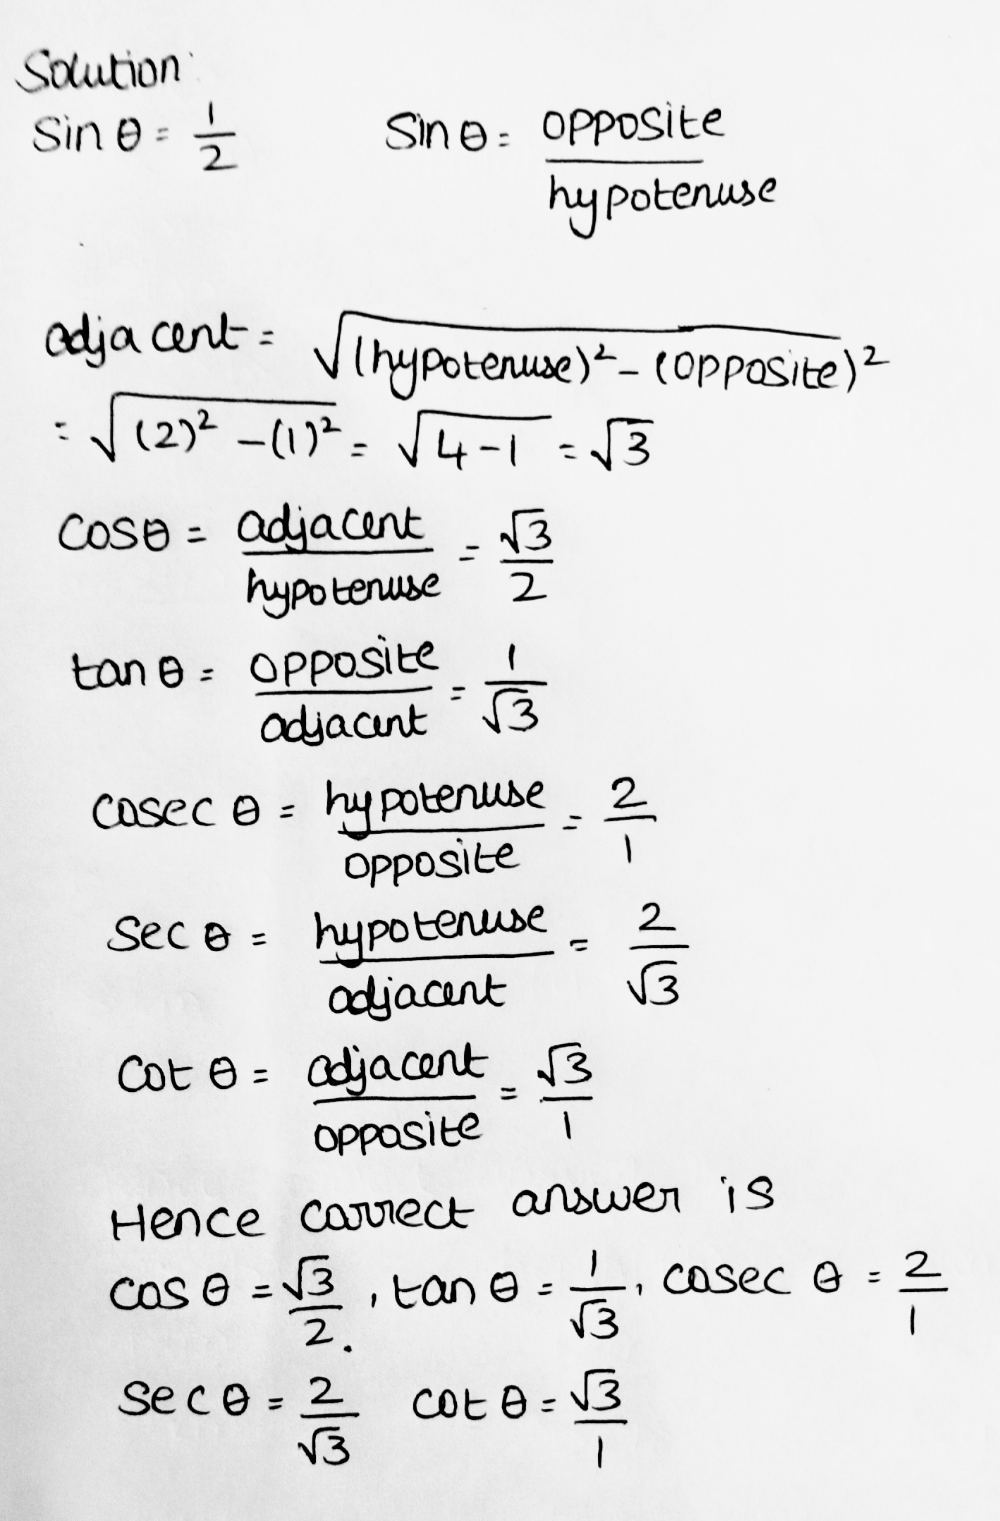 Solution:
Sin θ = 1/2 Sin θ = opposite/hypotenuse
adjacent = √(hypotenuse)² - (opposite)²
= √(2)² - (1)² = √4-1 = √3
Cosθ = adjacent/hypotenuse = √3/2
tan θ = opposite/adjacent = 1/√3
Cosec θ = hypotenuse/opposite = 2/1
Sec θ = hypotenuse/adjacent = 2/√3
Cot θ = adjacent/opposite = √3/1
Hence correct answer is
cos θ = √3/2, tan θ = 1/√3, cosec θ = 2/1
Sec θ = 2/√3 cot θ = √3/1